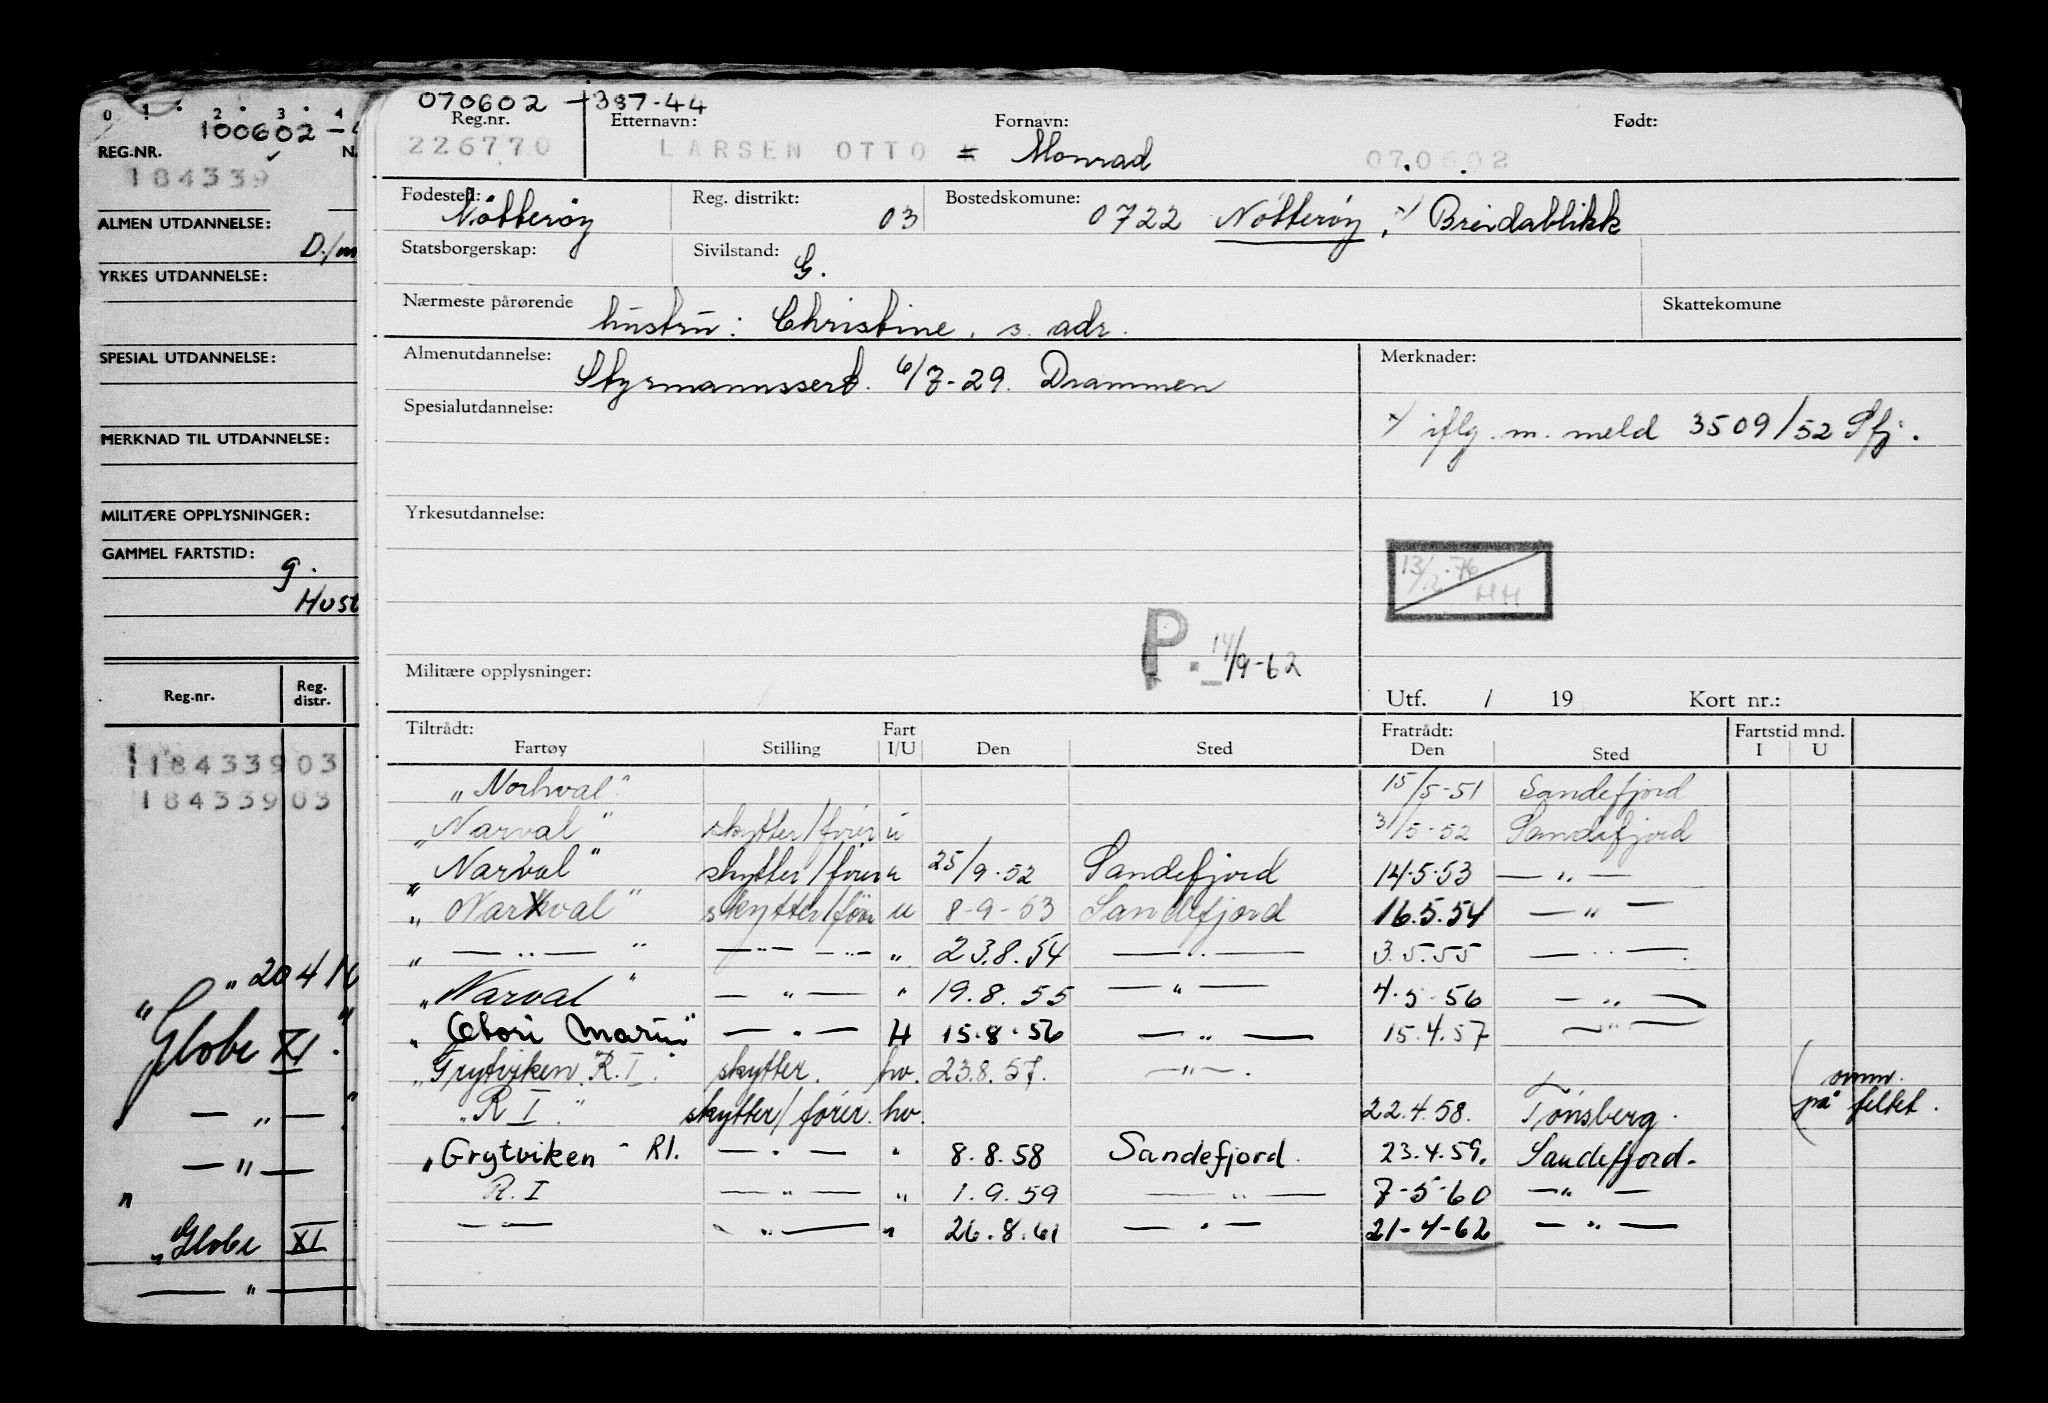 0 1 2 3 4
100602 -
REG.NR.
N
184339
ALMEN UTDANNELSE:
D./m
YRKES UTDANNELSE:
SPESIAL UTDANNELSE:
MERKNAD TIL UTDANNELSE:
MILITÆRE OPPLYSNINGER:
GAMMEL FARTSTID:
g.
Hust
Reg.nr. Reg. distr.
118433903
18433903
"Globe XI."
— " —
— " —
"Globe XI
— " —
070602 - 387-44
Reg.nr. Etternavn: Fornavn: Født:
226770 LARSEN OTTO = Monrad 070602
Fødested: Nötterøy Reg. distrikt: 03 Bostedskomune: 0722 Nötteröy, x/ Breidablikk
Statsborgerskap: Sivilstand: G.
Nærmeste pårørende hustru: Christine, s. adr. Skattekomune
Almenutdannelse: Styrmannssert. 6/7-29. Drammen Merknader:
Spesialutdannelse: x/ iflg. m. meld 3509/52 Sfj.
Yrkesutdannelse:
13/12.76 HH
P. 14/9-62
Militære opplysninger:
Utf. / 19 Kort nr.:
Tiltrådt: Fart Fratrådt: Fartstid mnd.
Fartøy Stilling I/U Den Sted Den Sted I U
"Norhval" 15/5-51 Sandefjord
"Narval" skytter/fører u 3/5-52 Sandefjord
"Narval" skytter/fører u 25/9-52 Sandefjord 14.5.53 — " —
"Narhval" skytter/fører u 8-9-53 Sandefjord 16.5.54 — " —
" — " — " — " — — " — " 23.8.54 — " — 3.5.55 — " —
"Narval" — " — " 19.8.55 — " — 4.5.56 — " —
" Marin" — " — H 15.8.56 — " — 15.4.57 — " —
"Grytviken R.I. skytter. hv. 23.8.57. — " —
"R I." skytter/fører. hv. 22.4.58. Tønsberg. (omm. på feltet.
"Grytviken - R1. — " — " 8.8.58 Sandefjord. 23.4.59. Sandefjord.
R. I — " — " 1.9.59 — " — 7-5-60 — " —
— — — " — " 26.8.61 — " — 21-4-62 — " —